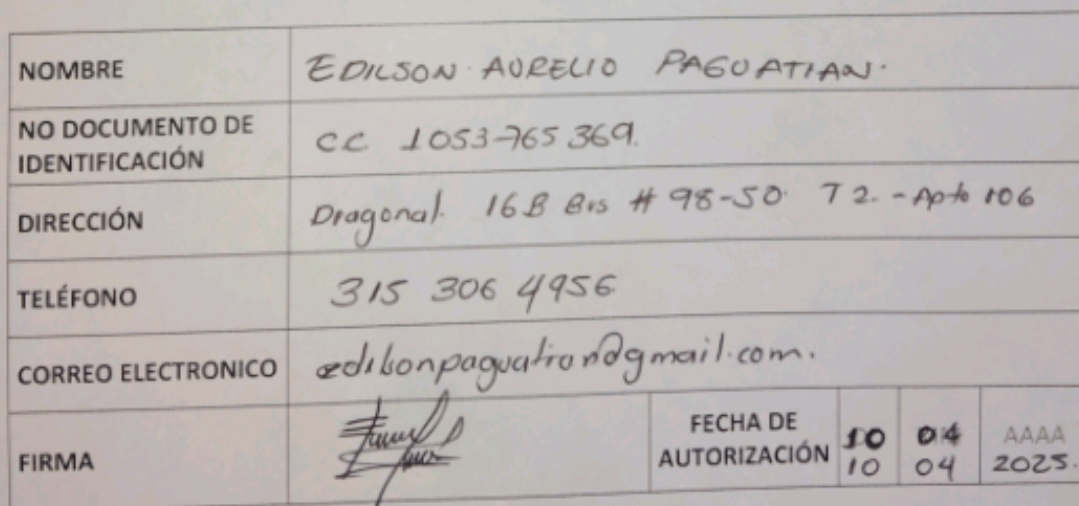 NOMBRE EDILSON AURELIO PAGUATIAN.
NO DOCUMENTO DE
IDENTIFICACIÓN CC 1053765369.
DIRECCIÓN Diagonal. 16B Bis # 98-50 T2.-Apto 106
TELÉFONO 315 306 4956
CORREO ELECTRONICO edilsonpaguatian@gmail.com.
FIRMA
FECHA DE
AUTORIZACIÓN
10 04 AAAA
10 04 2025.